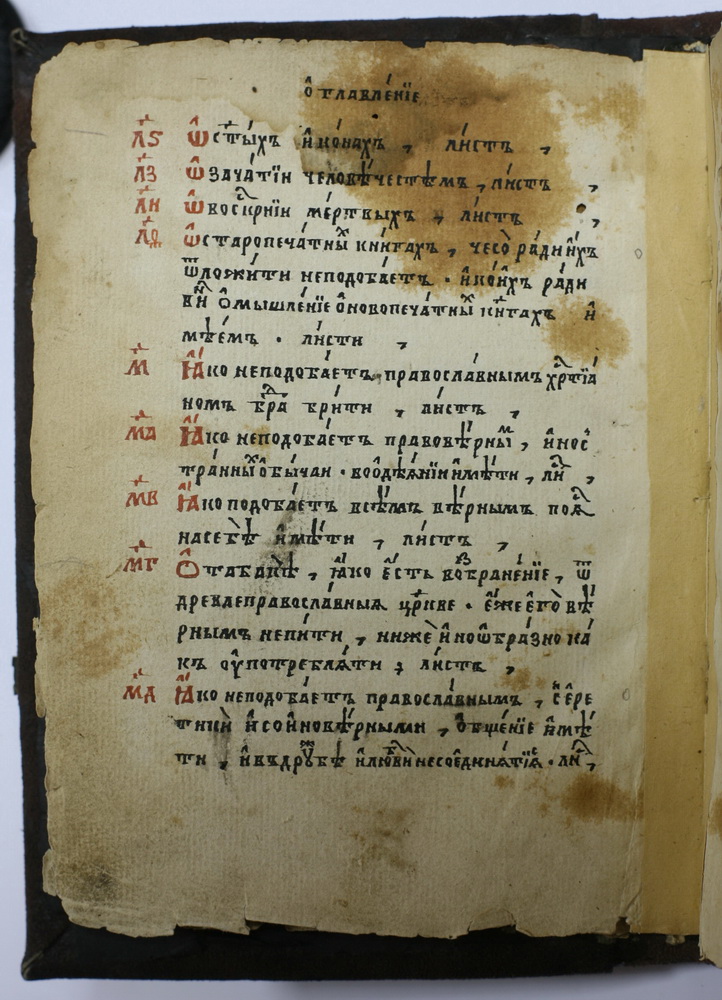 ѻ҆главле́нїе
л҃ѕ Ѡ҆ ст҃ы́хъ и҆ко́нахъ, ли́стъ,
л҃з Ѡ҆ зача́тїи человѣ́честѣмъ, ли́стъ,
л҃и Ѡ҆ воскрⷭ҇нїи ме́ртвыхъ, ли́стъ,
л҃ѳ Ѡ҆ старопеча́тныⷯ кни́гахъ, чесо̀ ра́ди и҆́хъ
ѿложи́ти неподоба́етъ. и҆ ко́ихъ ра́ди
ви́нъ ѻ҆мышле́нїе ѻ҆ новопеча́тныⷯ кни́гахъ и҆
мѣ́емъ. ли́сти,
м҃ Ꙗ҆́ко неподоба́етъ правосла́внымъ хрⷭ҇тїа́
номъ брады̀ бри́ти, ли́стъ,
м҃а Ꙗ҆́ко неподоба́етъ правовѣ́рныⷨ, и҆нос
тра́нныⷯ ѻ҆бы́чаи. во ѻ҆дѣѧ́нїи и҆мѣ́ти, лиⷭ,
м҃в Ꙗ҆́ко подоба́етъ всѣ́мъ вѣ́рнымъ поѧⷭ
на себѣ̀ и҆мѣ́ти, ли́стъ,
м҃г Ѻ҆ табакѣ̀, ꙗ҆́ко є҆́сть возбране́нїе, ѿ
древлеправосла́вныѧ цр҃кве. є҆́же є҆го̀ вѣ́
рнымъ непи́ти, нижѐ и҆но ѡ҆бра́зно ка́
къ ᲂу҆потреблѧ́ти; ли́стъ,
м҃д Ꙗ҆́ко неподоба́етъ правосла́внымъ, съ є҆ре
тики̑ и҆ со и҆новѣ́рными, ѻ҆бще́нїе и҆мѣ́
ти, и҆ въ дрꙋ́жбѣ и҆ любви̑ несоедннѧ́тїсѧ. лиⷭ,